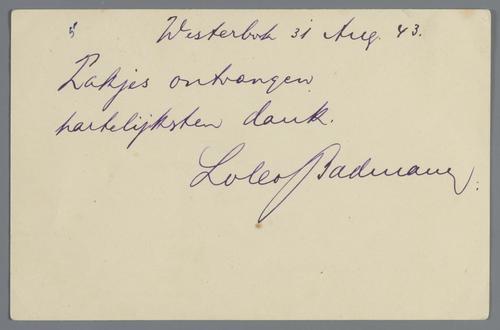 5
Westerbok 31 Aug. 43.
Pakjes ontvangen
hartelijksten dank.
Badmann